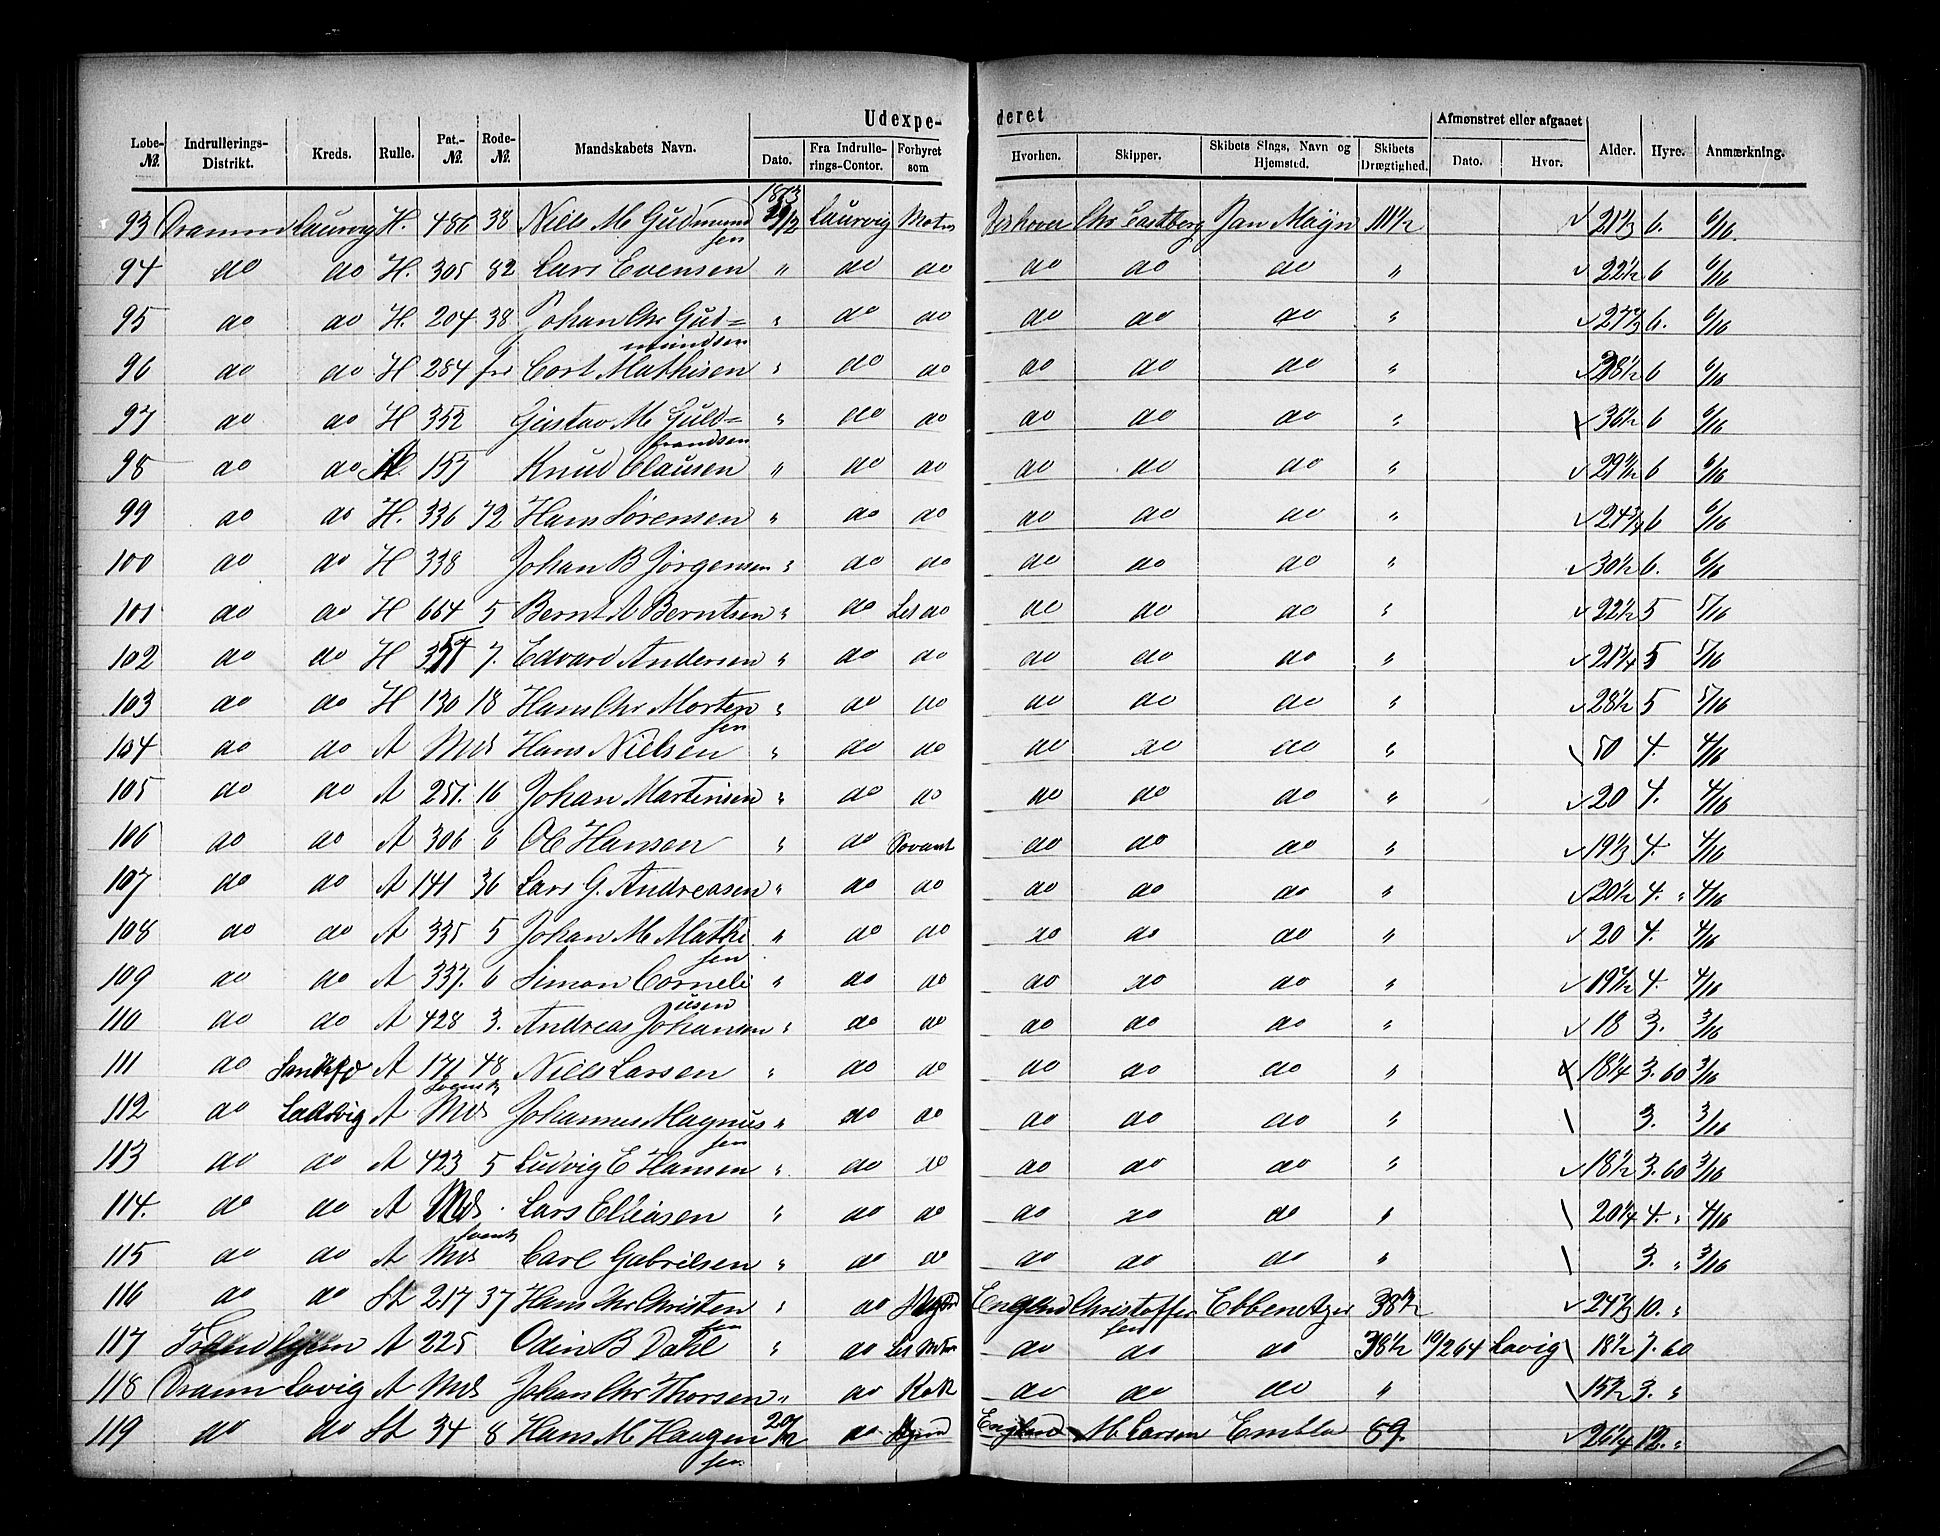 Udexpe- deret
Løbe-№. Indrullerings-Distrikt. Kreds. Rulle. Pat.-№. Rode-№. Mandskabets Navn. Dato. Fra Indrullerings-Contor. Forhyret som Hvorhen. Skipper. Skibets Slags, Navn og Hjemsted. Skibets Drægtighed. Afmønstret eller afgaaet Dato. Hvor. Alder. Hyre. Anmærkning.
1873
93 Dramm Laurvig H. 486 38 Niels M Gudmundsen Laurvig Matros Chr Castberg Jan Mayn 111½ 21⅓ 6. 6/16.
94 do do H. 305 82 Lars Evensen " do do do do do " 22½ 6 6/16
95 do do H. 204 38 Johan Chr Gud=mundsen " do do do do do " 27⅔ 6. 6/16
96 do do H 284 fri Cort Mathisen " do do do do do " 6 6/16
97 do do H 352 Gustav M Guld=brandsen " do do do do do " 36½ 6 6/16
98 do do H. 157 Knud Clausen " do do do do do " 6 6/16
99 do do H. 336 72 Hans Sørensen " do do do do do " 24¾ 6 6/16
100 do do H 338 Johan B Jørgensen " do do do do do " 30½ 6. 6/16
101 do do H 664 5 Bernt A Berntsen " do Let do do do do " 22½ 5 5/16
102 do do H 7. Edvard Andersen " do do do do do " 21¾ 5 5/16
103 do do H 130 18 Hans Chr Mortensen " do do do do do " 28½ 5 5/16
104 do do A Mds Hans Nielsen " do do do do do " 50 4. 4/16
105 do do A 251. 16 Johan Martinsen " do do do do do " 20 4. 4/16
106 do do A 306 6 Ole Hansen " do Jovant do do do " 19⅓ 4. 4/16
107 do do A 141 36 Lars G. Andreasen " do do do do do " 20½ 4. " 4/16
108 do do A 335 5 Johan M Mathisen " do do do do do " 20 4. 4/16
109 do do A 337. 6 Simon Corneliusen " do do do do do " 19½ 4. 4/16
110 do do A 428 3. Andreas Johansen " do do do do do " 18 3. 3/16
111 do Sandefd A 171 48 Niels Larsen " do do do do do " 18¼ 3. 60 3/16
112 do Laurvig A Svensk Mds Johannes Magnussen " do do do do do " 3. 3/16
113 do do A 423 5 Ludvig E Hansen " do do do do do " 18½ 3. 60 3/16
114. do do A Mds Lars Elliasen " do do do do do " 20¼ 4. " 4/16
115 do do A Svensk Mds Carl Gabrilsen " do do do do do " 3. " 3/16
116 do do St 217 37 Hans Chr Christensen " do England Christoffersen Ebbenetzer 38½ 24⅔ 10. "
117 Trondhjem A 225 Odin B Dahl " do Let Matros do do do 38½ 10/2 64 Lavig 18½ 7. 60
118 Dramm Lavig A Mds Johan Chr Thorsen " do Kok do do do " 15½ 3. "
119 do do St 34 8 Hans M Haagensen 20/12 do England M Larsen Embla 89. 26¼ 12. "